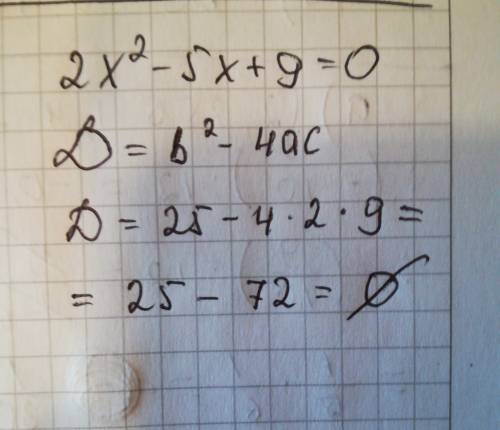 2x² - 5x + 9 = 0
D = b² - 4ac
D = 25 - 4 · 2 · 9 =
= 25 - 72 = ∅